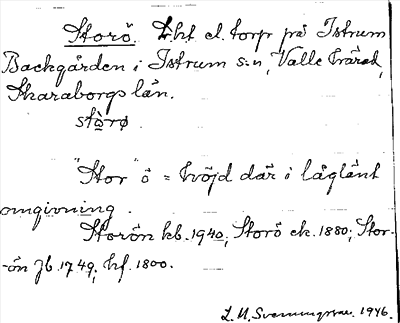 Storö. Lht el. torp på Istrum
Backgården i Istrum s:n, Valle härad,
Skaraborgs län.
störø.
"Stor" ö = höjd där i låglänt
omgivning.
Storön kb. 1940; Storö ek. 1880; Stor-
-ön Jb. 1749; hf. 1800.
L. U. 1946.